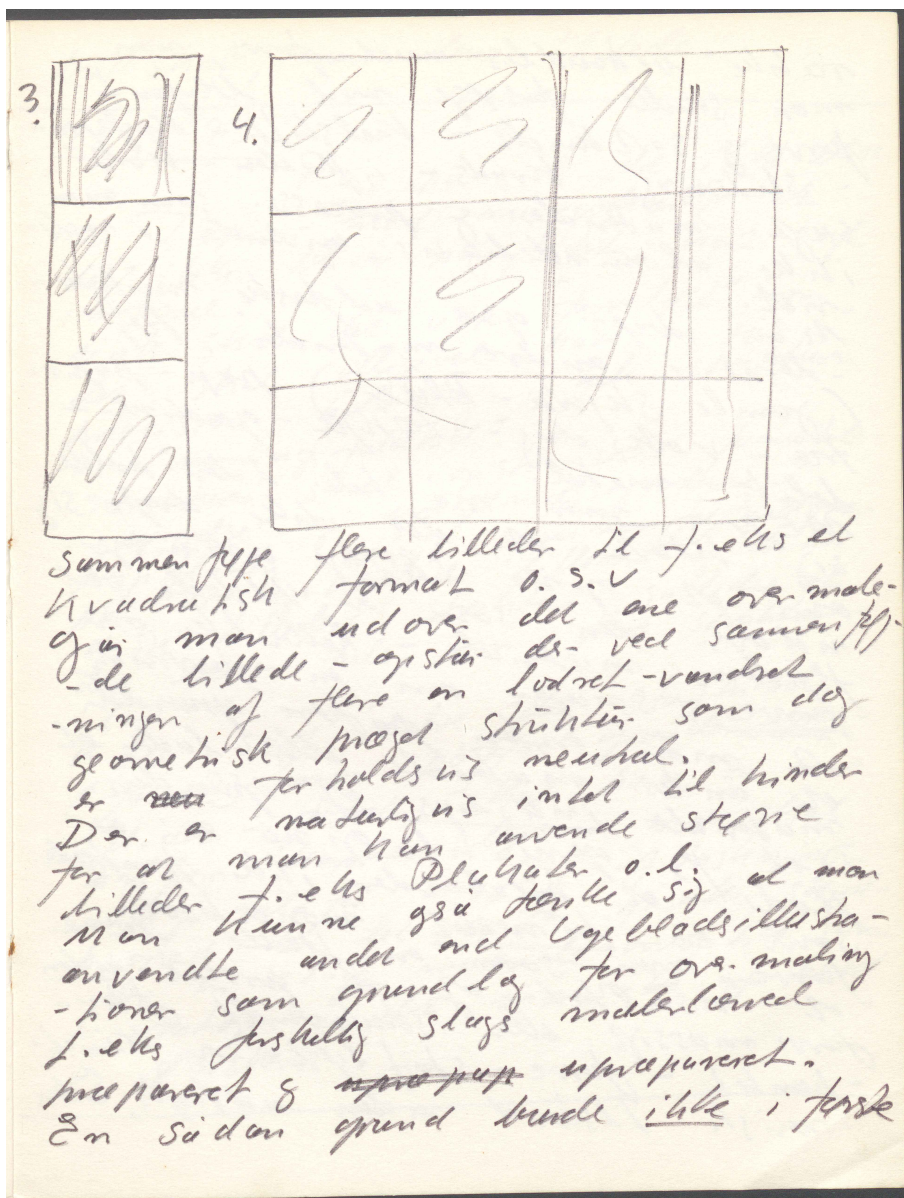 3.
4.
Sammenføje flere billeder til f.eks et
kvadratisk format o.s.v
Går man ud over det ene overmale-
-de billede - opstår der ved sammenføj-
-ningen af flere en lodret-vandret
geometrisk præget struktur som dog
er neu forholdsvis neutral.
Der er naturligvis intet til hinder
for at man kan anvende større
billeder f.eks Plakater o.l.
Man kunne også tænke sig at man
anvendte andet end Ugebladsillustra-
-tioner som grundlag for overmaling
f.eks forskellig slags malerlærred
præpareret og upræpap upræpareret.
En sådan grund burde ikke i første